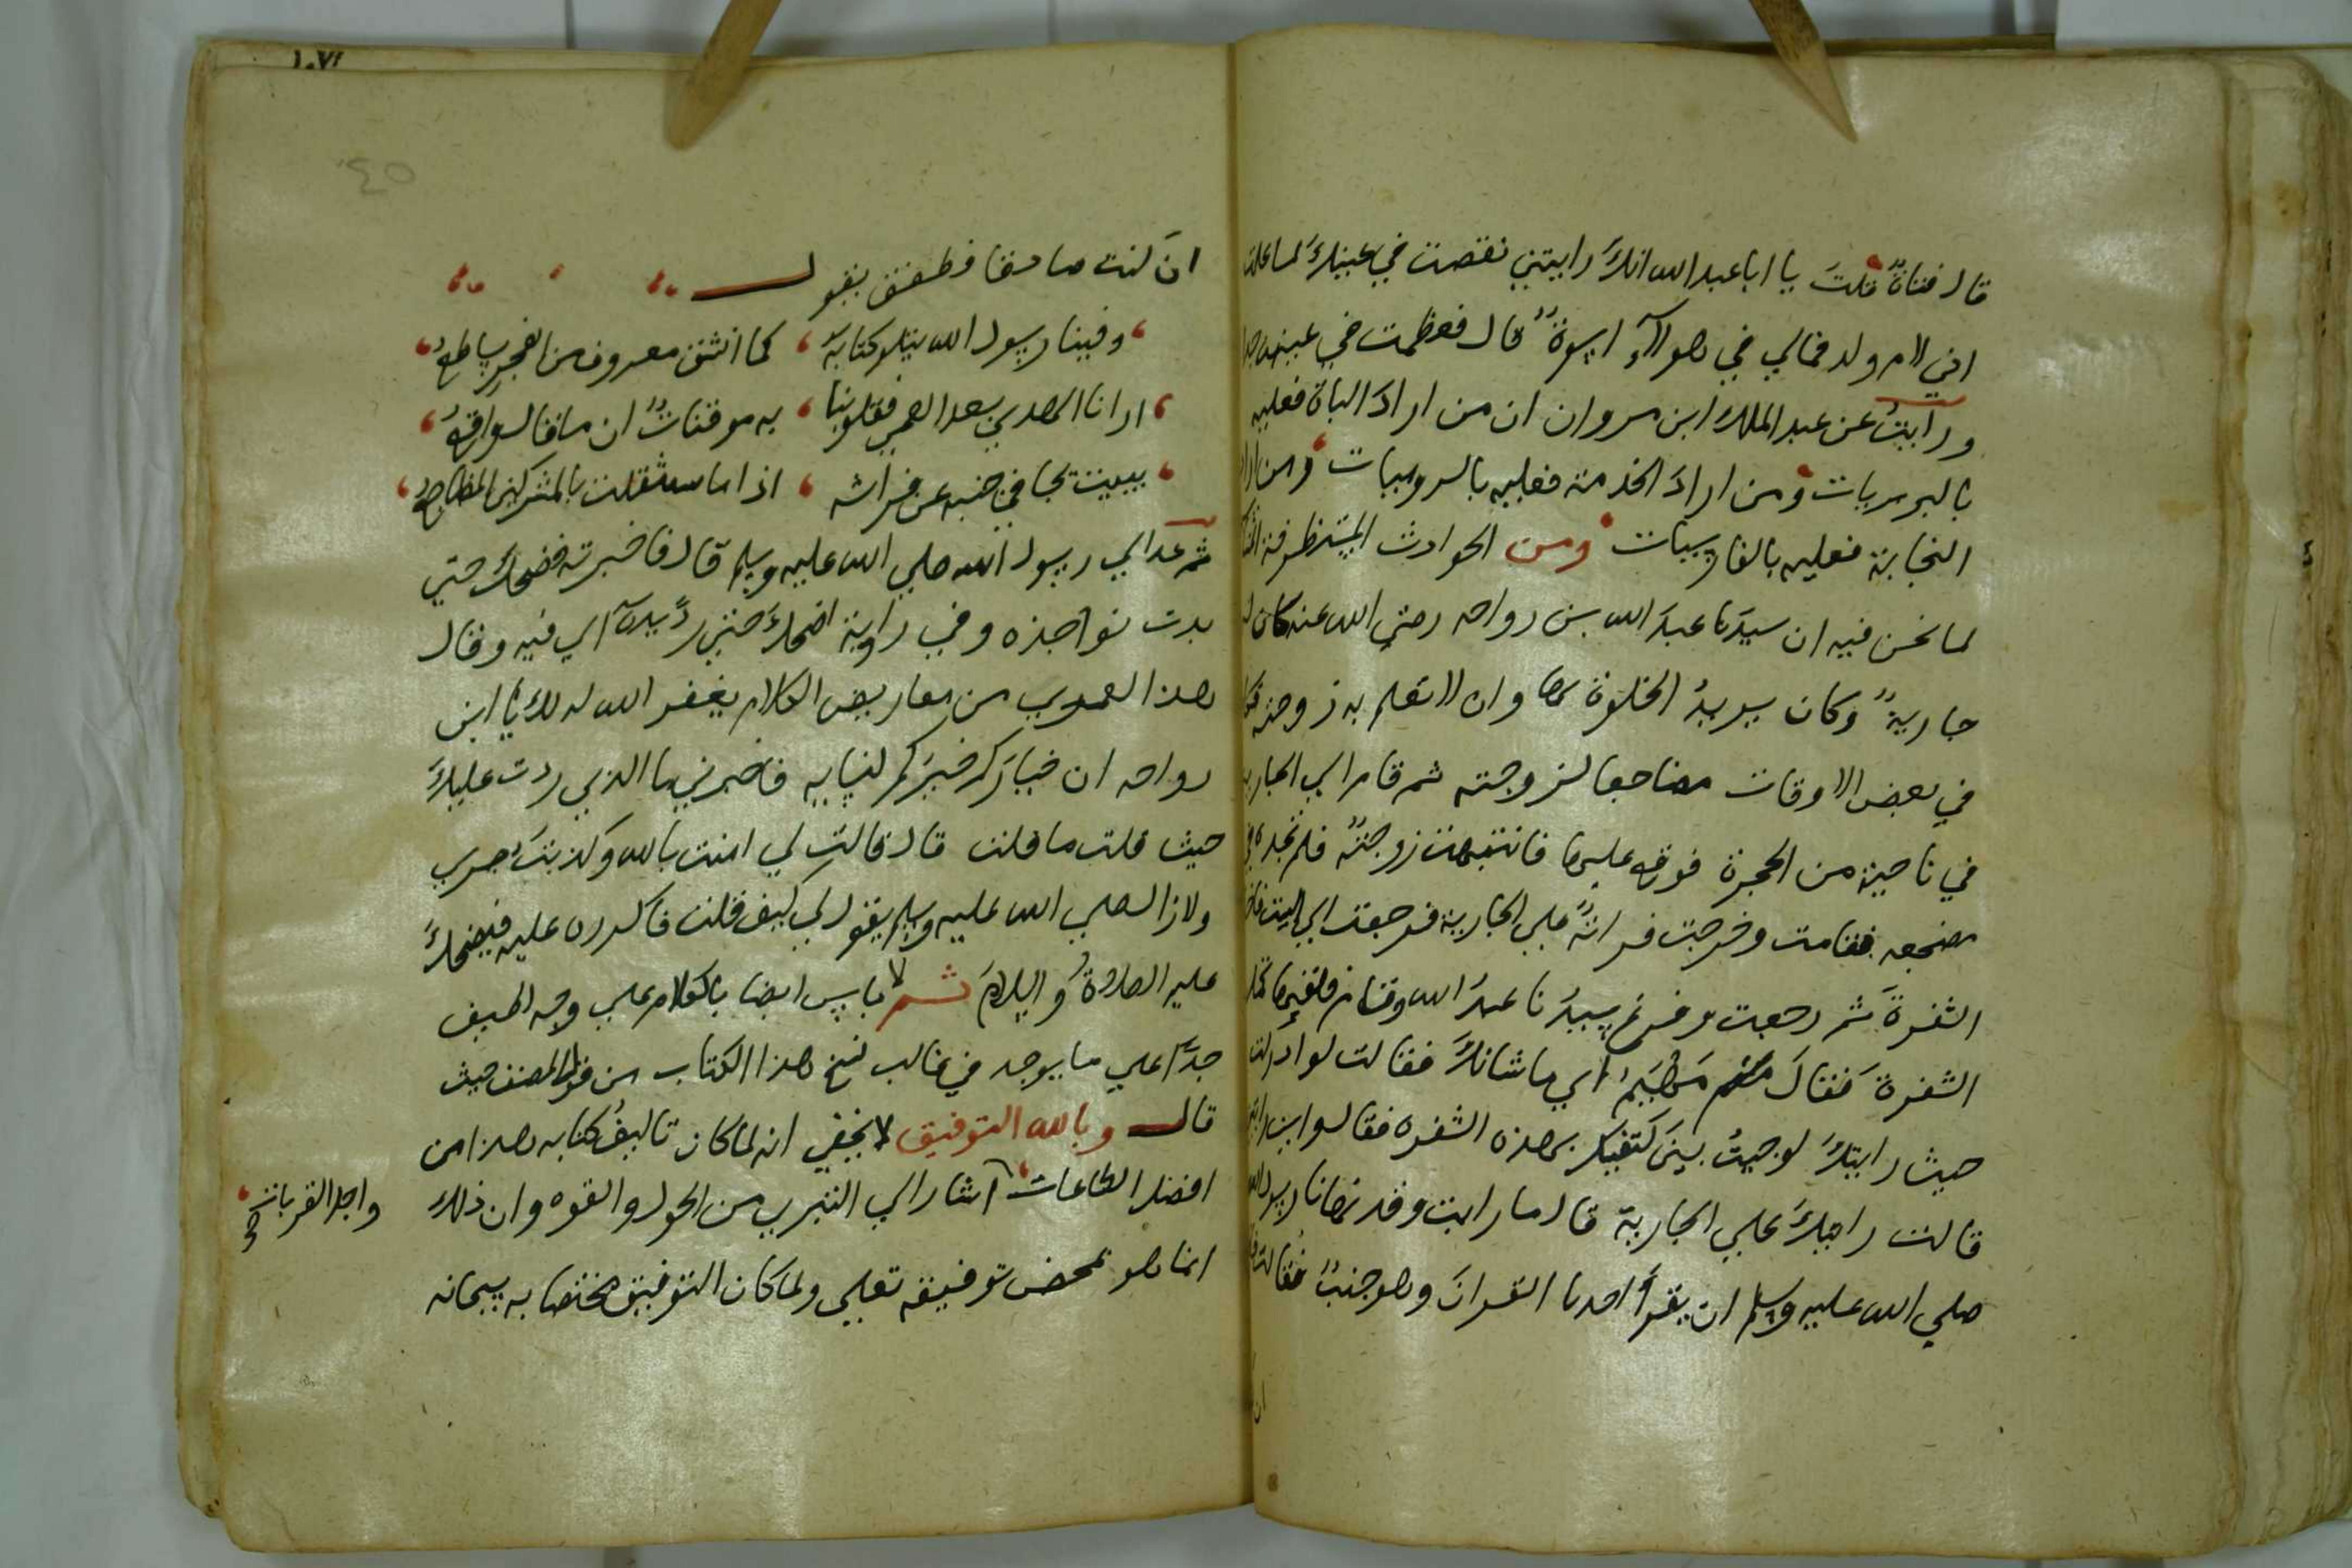 قال فتاةٌ قلتَ يا ابا عبد الله انكَ رايتني نقصت في عينيكَ لما علمت
اني لام ولد فمالي في هولآء اسوةٌ قال فعظمت في عينه جدا
ورآيتُ عن عبد الملك ابن مروان ان من ارادَ الباة فعليه
بالبربريات ومن ارادَ الخدمة فعليه بالروميات ومن اراد
النجابة فعليه بالفارسيات ومن الحوادث المستظرفة
لما نحن فيه ان سيدَنا عبدَ الله بن رواحه رضي الله عنه كان له
جاريةٌ وكان يريدُ الخلوة بها وان لا تعلم به زوجته فكان
في بعض الاوقات مضاجعا لزوجته ثم قام الي الجارية
في ناحية من الحجرة فوقع عليها فانتبهت زوجتُه فلم تجده في
مضجعه فقامت وخرجت فراتهُ علي الجارية فرجعت الي البيت
الشفرةَ ثم رجعت وفرغ سيدُنا عبدُ الله وقام فلقيها
الشفرة فقالَ مَهْيَم اي ما شانكَ فقالت لو ادركتك
حيث رايتكَ لوجيتُ بين كتفيك بهذه الشفره فقال واين
قالت رايتكَ علي الجارية قال ما رايت وقد نهانا رسول الله
صلي الله عليه وسلم ان يقرأَ احدنا القرانَ وهو جنبٌ فقالت
ان
١٠٧
٤٥
انَ كنت صادقا فطفق يقول
وفينا رسول الله يتلو كتابهُ كما انشق معروف من الفجرِ ساطعُ
ارانا الهدي بعد العمي فقلوبنا به موقناتٌ ان ما قال واقعُ
يبيت يجافي جنبه عن فراشه اذا ما استثقلت بالمشركين المضاجعُ
ثم غدا الي رسول الله صلي الله عليه وسلم قال فاخبرته فضحكَ حتي
بدت نواجذه وفي رواية اضحكَ حتي ردَّ يدهُ الي فيه وقال
هذا لعمري من معاريض الكلام يغفر الله لك يا ابن
رواحه ان خيارَكم خيرَكم لنسايه فاخبرني ما الذي ردت عليكَ
حيث قلت ما قلت قال قالت لي امنت بالله وكذبتَ بصري
ولا زال صلي الله عليه وسلم يقول لي كيف قلت فاكررهُ عليه فيضحكُ
عليه الصلاةُ والسلامَ ثم لا باس ايضا بالكلام علي وجه لطيف
جدّا علي ما يوجد في غالب نسخ هذا الكتاب من قول المصنف حيث
قال وبالله التوفيق لا يخفي انه لما كان تاليفُ كتابه هذا من
افضل الطاعات اشار الي التبري من الحول والقوه وان ذلك
انما هو بمحض توفيقه تعلي ولما كان التوفيق مختصا به سبحانه
واجل القربات صح